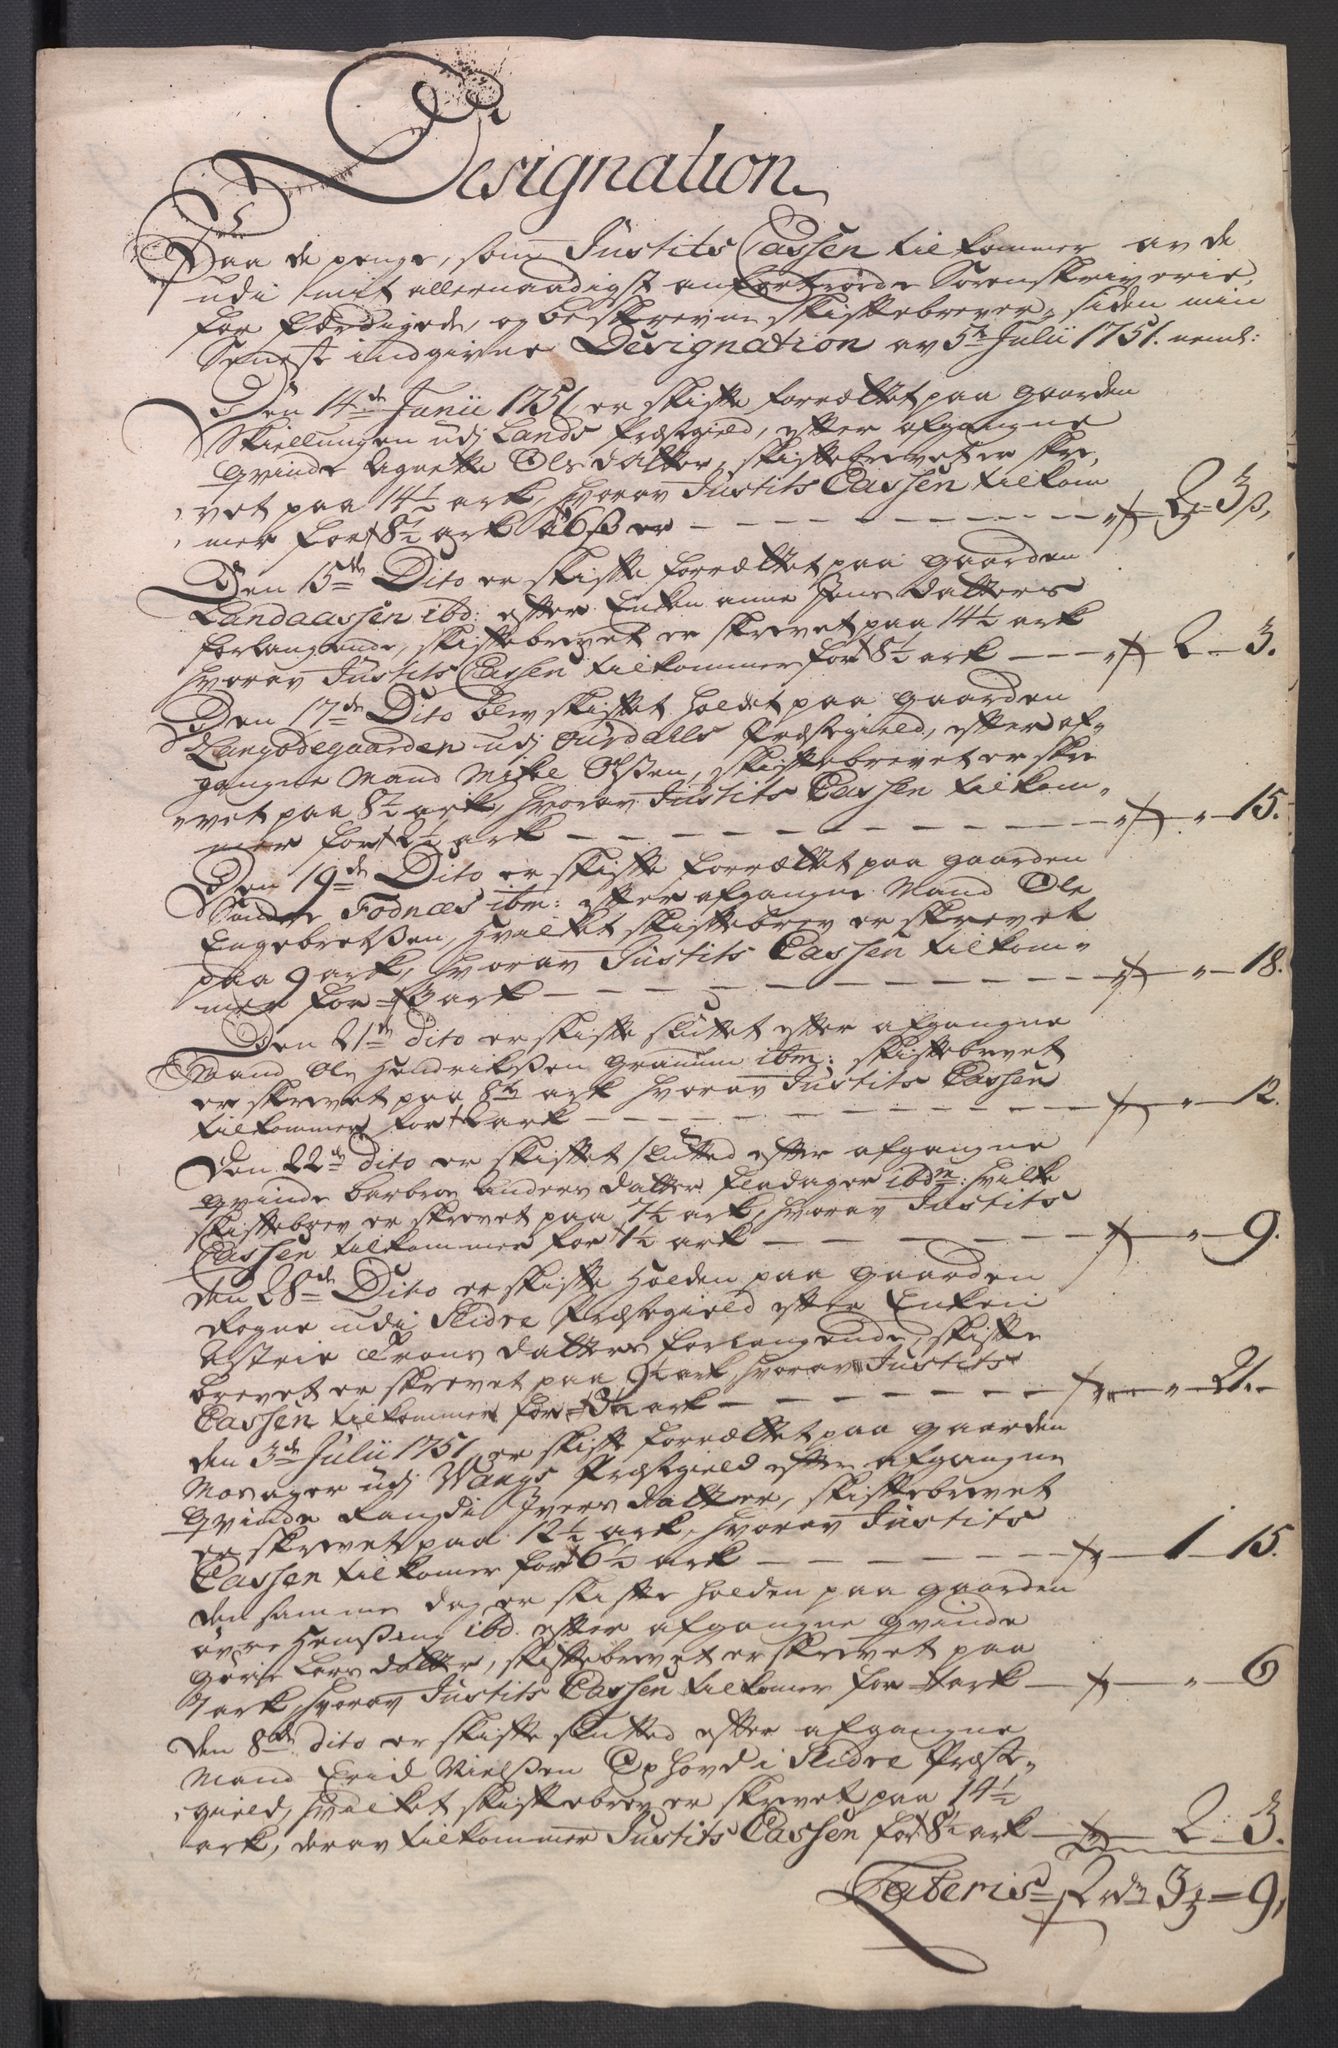 Designation
Paa de penge, som Justits Cassen tilkommer av de
udi mit allernaadigst anfortroede Sorenskriverie,
for færdigede, og beskrevne skiftebrever, siden min
Seneste indgivne Designation av 5te Julii 1751. neml:
Den 14de Junii 1751 er skifte forrættet paa gaarden
Skiellungen udj Lands Præstegield, efter afgangne
Qvinde Agnette Olsdatter, skiftebrevet er skre,
vet paa 14½ ark, hvorav Justits Cassen tilkom
mer for 8½ ark à 6 ß er - 2 - 3 ß,
Den 15de Dito er skifte forrættet paa gaarden
Landaassen ibd: efter Enken anne Jens datters
forlangende, skiftebrevet er skrevet paa 14½ ark
hvorav Justits Cassen tilkommer for 8½ ark - 2 - 3.
Den 17de Dito blev skiftet holdet paa gaarden
Langødegaarden udj Ourdalls Præstegield, efter af-
gangne Mand Mikkel Olsen, skiftebrevet er skre
vet paa 8½ ark, hvorav Justits Cassen tilkom-
mer for 2½ ark - " - 15.
Den 19de Dito er skifte forrættet paa gaarden
Søndre Fodnæs ibm: efter afgangne Mand Ole
Engebretsen, hvilket skiftebrev er skrevet
paa 9 ark, hvorav Justits Cassen tilkom-
mer for 3 ark - " - 18.
Den 21de dito er skifte sluttet efter afgangne
Mand Ole Hendriksen Granum ibm: skiftebrevet
er skrevet paa 8 ark hvorav Justits Cassen
tilkommer for 2 ark - " - 12.
Den 22de dito er skiftet slutted efter afgangne
qvinde barbroe anders datter fladager ibdm: hvilke
skiftebrev er skrevet paa 7½ ark, hvorav Justits
Cassen tilkommer for 1½ ark - " - 9.
den 28de Dito er skifte holden paa gaarden
Rogne udi Slidre Præstegield efter Enken
Astrie Trons datters forlangende, skifte
brevet er skrevet paa 9½ ark hvorav Justits
Cassen tilkommer for 3½ ark - " - 21.
den 3de Julii 1751, er skifte forrættet paa gaarden
Mosager udj Wangs Præstegield efter afgangne
Qvinde Randi Ivers datter, skiftebrevet
er skrevet paa 12½ ark, hvorav Justits
Cassen tilkomer for 6½ ark - 1 - 15.
den samme dag er skifte holden paa gaarden
øvre Hensing ibd. efter afgangne qvinde
Gørie Lars datter, skiftebrevet er skrevet paa
7 ark, hvorav Justits Cassen tilkomer for 1 ark - " - 6
den 8de dito er skifte slutted efter afgangne
Mand Erich Nielsen Ophovd i Slidre Præste-
gield, hvilket skiftebrev er skrevet paa 14½
ark, derav tilkommer Justits Cassen for 8½ ark - 2 - 3.
Lateris 12 rdr 3 = 9,